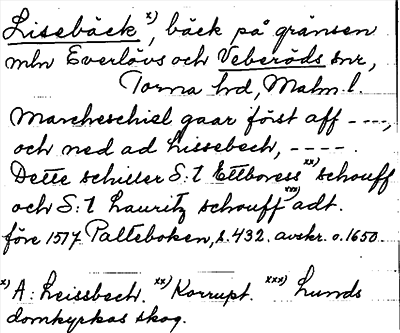 Lisebäck x), bäck på gränsen
mln Everlövs och Veberöds snr,
Torna hd, Malm. l.
Marcheschiel gaar först aff ----,
och ned ad Lissebech, ----.
Dette schiller S:t Ettboress xx) schouff
och S:t Lauritz schouff xxx) adt.
före 1517 Palteboken, s. 432. avskr. o. 1650.
x) A: Leissbech. xx) Korrupt. xxx) Lunds
domkyrkas skog.